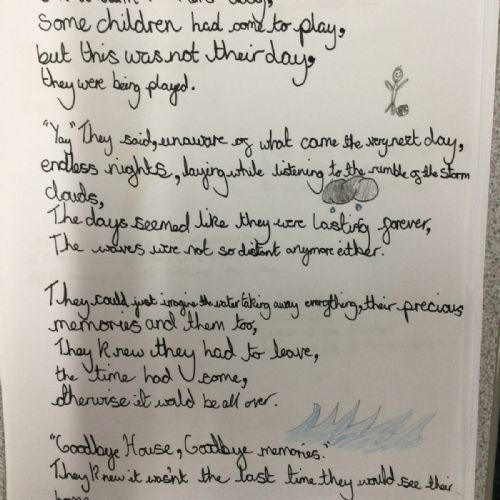 some children had come to play,
but this was not their day,
they were being played.
"Yay" They said, unaware of what came the very next day,
endless nights, laying while listening to the rumble of the storm
clouds,
The days seemed like they were lasting forever,
The waves were not so distant anymore either.
They could just imagine the water taking away everything, their precious
memories and them too,
They knew they had to leave,
the time had come,
otherwise it would be all over.
"Goodbye House, Goodbye memories."
They knew it wasn't the last time they would see their